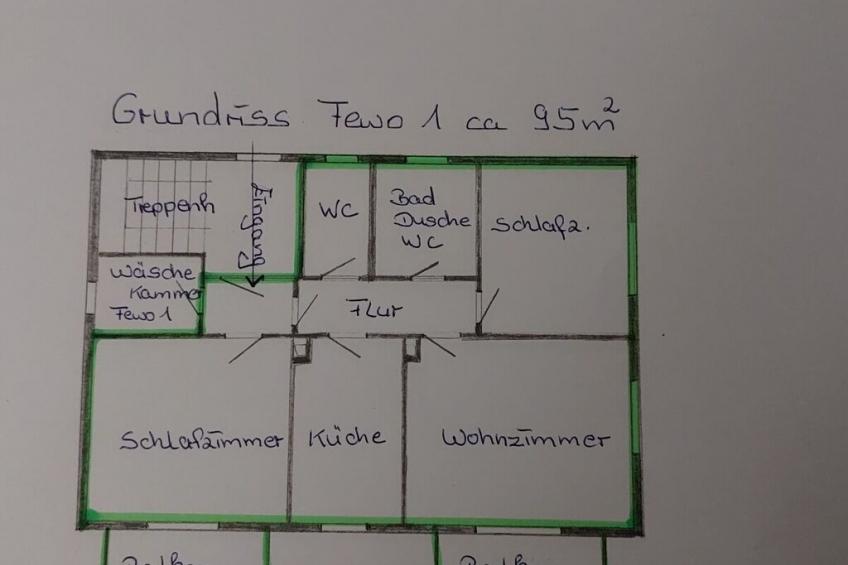 Grundriss Fewo 1 ca 95m²
Treppenh
Eingang
WC
Bad
Dusche
WC
Schlafz.
Wäsche
Kammer
Fewo 1
Flur
Schlafzimmer
Küche
Wohnzimmer